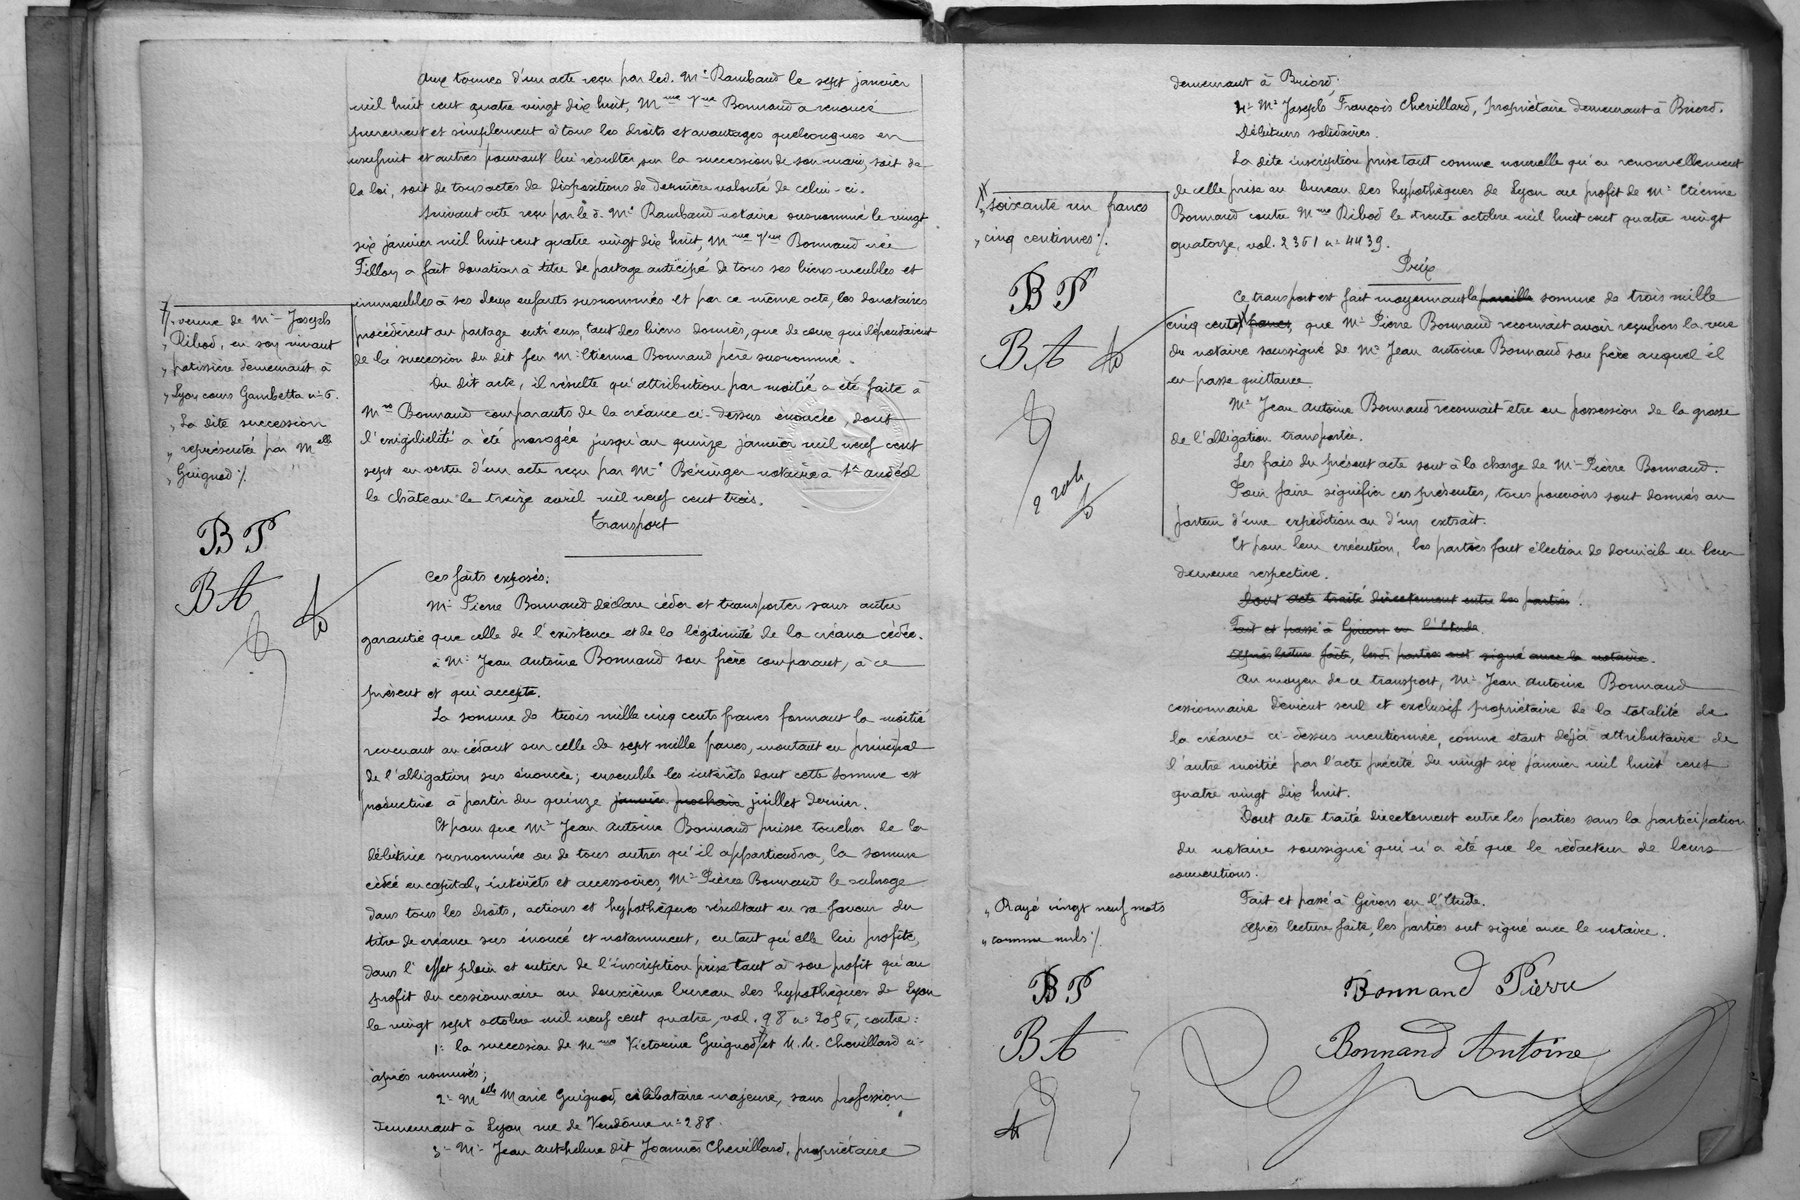 Aux termes d'un acte reçu par led. Me Rambaud le sept janvier
mil huit cent quatre vingt dix huit, Mme Vve Bonnand a renoncé
purement et simplement à tous les droits et avantages quelconques en
usufruit et autres pouvant lui résulter sur la succession de son mari, soit de
la loi, soit de tous actes de dispositions de dernière volonté de celui-ci.
Suivant acte reçu par le d. Me Rambaud notaire susnommé le vingt
six janvier mil huit cent quatre vingt dix huit, Mme Vve Bonnand née
Fillon a fait donation à titre de partage anticipé de tous ses biens meubles et
immeubles à ses deux enfants susnommés et par ce même acte, les donataires
procédèrent au partage entr'eux, tant des biens donnés, que de ceux qui dépendaient
de la succession du dit feu Mr Etienne Bonnand père susnommé.
Du dit acte, il résulte qu'attribution par moitié a été faite à
Mrs Bonnand comparants de la créance ci-dessus énoncée, dont
l'exigibilité a été prorogée jusqu'au quinze janvier mil neuf cent
sept en vertu d'un acte reçu par Me Béringer notaire à St andéol
le château le treize avril mil neuf cent trois.
Transport
Ces faits exposés:
Mr Pierre Bonnand déclare céder et transporter sans autre
garantie que celle de l'existence et de la légitimité de la créance cédée.
à Mr Jean Antoine Bonnand son frère comparant, à ce
présent et qui accepte.
La somme de trois mille cinq cents francs formant la moitié
revenant au cédant sur celle de sept mille francs, montant en principal
de l'obligation sus énoncée; ensemble les intérêts dont cette somme est
productive à partir du quinze janvier prochain juillet dernier.
Et pour que Mr Jean Antoine Bonnand puisse toucher de la
débitrice susnommée ou de tous autres qu'il appartiendra, la somme
cédée en capital, intérêts et accessoires, Mr Pierre Bonnand le subroge
dans tous les droits, actions et hypothèques résultant en sa faveur du
titre de créance sus énoncé et notamment, en tant qu'elle lui profite,
dans l'effet plein et entier de l'inscription prise tant à son profit qu'au
profit du cessionnaire au deuxième bureau des hypothèques de Lyon
le vingt sept octobre mil neuf cent quatre, vol. 98 no contre:
1o la succession de Mme Victorine Guignod et M.M. Chevillard ci-
après nommés;
2o Melle Marie Guignod, célibataire majeure, sans profession
demeurant à Lyon rue de Vendôme no 288.
3o Mr Jean anthelme dit Joannès Chevillard, propriétaire
veuve de Mr Joseph
" Ribod, en son vivant
" patissière demeurant à
" Lyon cours Gambetta no 6.
" La dite succession
" représentée par Melle
" Guignod %.
BP
BA
demeurant à Briord;
4o Mr Joseph François Chevillard, propriétaire demeurant à Briord.
Débiteurs solidaires.
La dite inscription prise tant comme nouvelle qu'en renouvellement
de celle prise au bureau des hypothèques de Lyon au profit de Mr Etienne
Bonnand contre Mme Ribod le trente octobre mil huit cent quatre vingt
quatorze, vol. 2361 no 4439.
Prix
Ce transport est fait moyennant la pareille somme de trois mille
cinq cents francs, que Mr Pierre Bonnand reconnait avoir reçu hors la vue
du notaire soussigné de Mr Jean antoine Bonnand son frère auquel il
en passe quittance.
Mr Jean Antoine Bonnand reconnait être en possession de la grosse
de l'obligation transportée.
Les frais du présent acte sont à la charge de Mr Pierre Bonnand.
Pour faire signifier ces présentes, tous pouvoirs sont donnés au
porteur d'une expédition ou d'un extrait.
Et pour leur exécution, les parties font élection de domicile en leur
demeure respective.
Dont acte traité directement entre les parties.
Fait et passé à Givors en l'Etude.
Après lecture faite, lesd. parties ont signé avec le notaire.
Au moyen de ce transport, Mr Jean Antoine Bonnand
cessionnaire devient seul et exclusif propriétaire de la totalité de
la créance ci-dessus mentionnée, comme étant déjà attributaire de
l'autre moitié par l'acte précité du vingt six janvier mil huit cent
quatre vingt dix huit.
Dont acte traité directement entre les parties sans la participation
du notaire soussigné qui n'a été que le rédacteur de leurs
conventions.
Fait et passé à Givors en l'Etude.
Après lecture faite, les parties ont signé avec le notaire.
Bonnand Pierre
Bonnand Antoine
" soixante un francs
" cinq centimes %.
BP
BA
" Rayé vingt neuf mots
" comme nuls %.
BP
BA